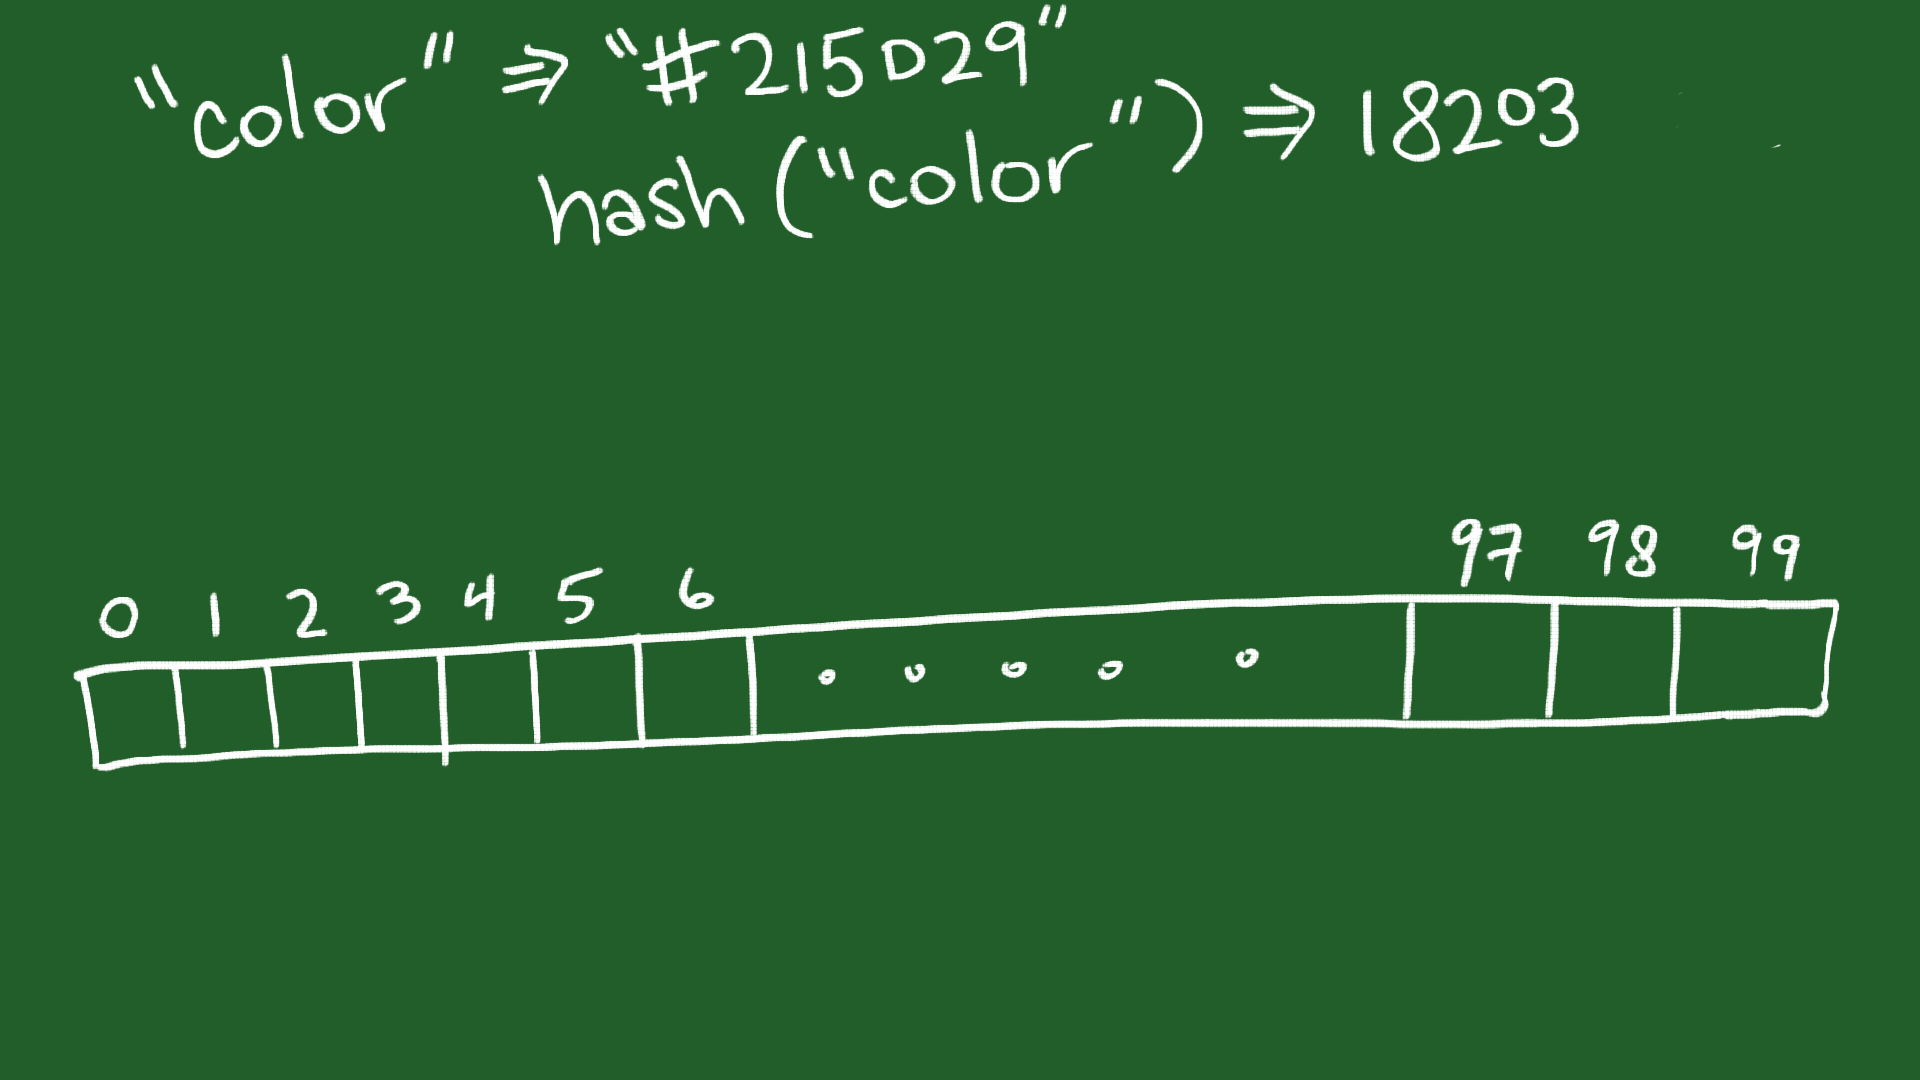 "color" ⇒ "#215D29"
hash("color") ⇒ 18203
0 1 2 3 4 5 6 97 98 99